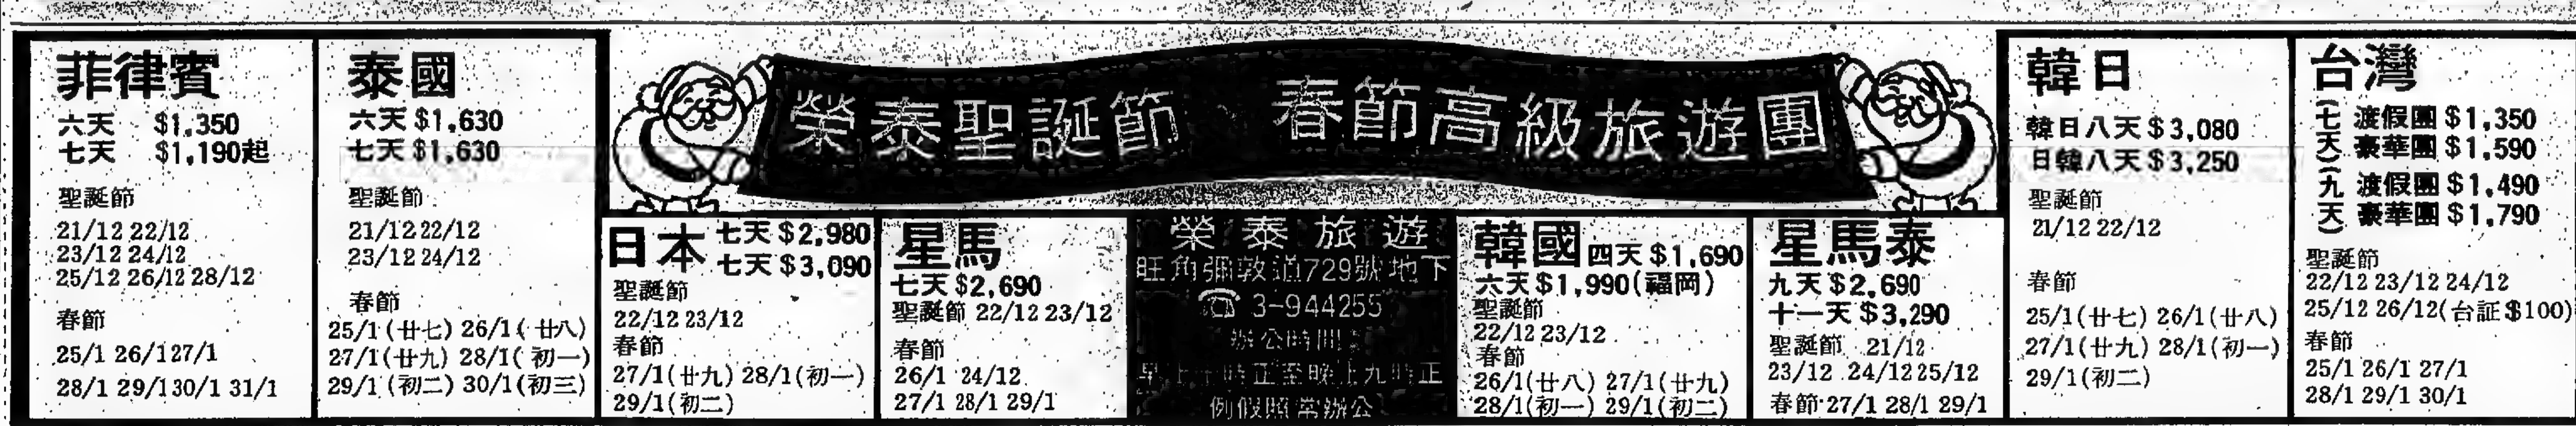 菲律賓
六天 $1,350
七天 $1,190起
聖誕節
21/12 22/12
23/12 24/12
25/12 26/12 28/12
春節
25/1 26/1 27/1
28/1 29/1 30/1 31/1
泰國
六天 $1,630
七天 $1,630
聖誕節
21/12 22/12
23/12 24/12
春節
25/1(廿七) 26/1(廿八)
27/1(廿九) 28/1(初一)
29/1(初二) 30/1(初三)
榮泰聖誕節 春節高級旅遊團
日本 七天 $2,980
七天 $3,090
聖誕節
22/12 23/12
春節
27/1(廿九) 28/1(初一)
29/1(初二)
星馬
七天 $2,690
聖誕節 22/12 23/12
春節
26/1 24/12
27/1 28/1 29/1
榮泰旅遊
旺角彌敦道729號地下
☎ 3-944255
辦公時間:
早上十時正至晚上九時正
例假照常辦公
韓國 四天 $1,690
六天 $1,990(福岡)
聖誕節
22/12 23/12
春節
26/1(廿八) 27/1(廿九)
28/1(初一) 29/1(初二)
星馬泰
九天 $2,690
十一天 $3,290
聖誕節 21/12
23/12 24/12 25/12
春節 27/1 28/1 29/1
韓日
韓日八天 $3,080
日韓八天 $3,250
聖誕節
21/12 22/12
春節
25/1(廿七) 26/1(廿八)
27/1(廿九) 28/1(初一)
29/1(初二)
台灣
(七天) 渡假團 $1,350
豪華團 $1,590
(九天) 渡假團 $1,490
豪華團 $1,790
聖誕節
22/12 23/12 24/12
25/12 26/12(台証$100)
春節
25/1 26/1 27/1
28/1 29/1 30/1